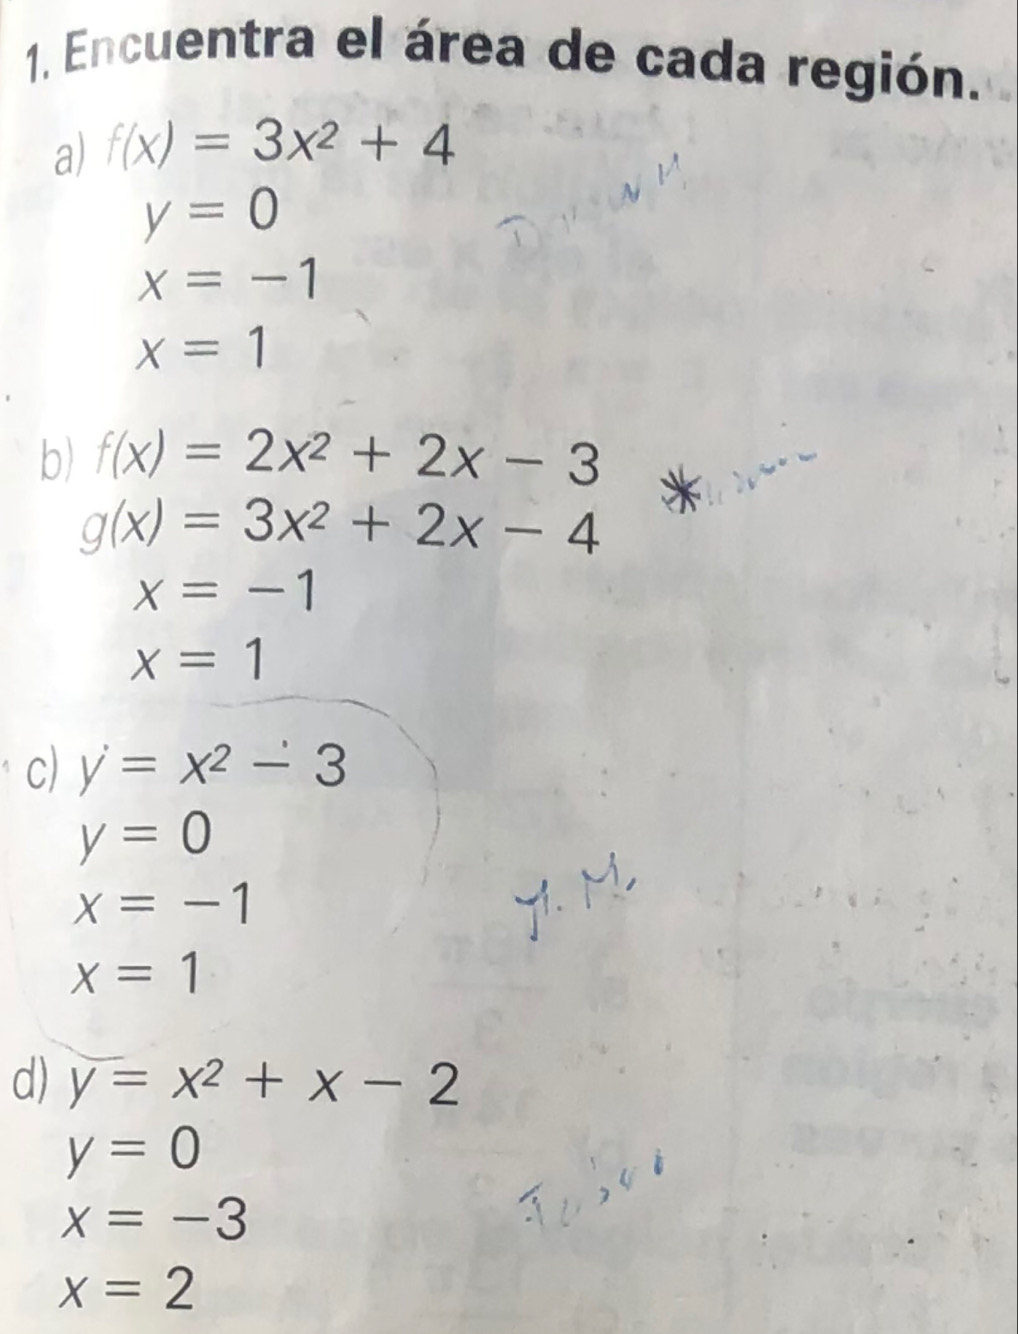 1. Encuentra el área de cada región.
a) f(x) = 3x² + 4
y = 0
x = −1
x = 1
b) f(x) = 2x² + 2x − 3
*
g(x) = 3x² + 2x − 4
x = −1
x = 1
c) y = x² − 3
y = 0
x = −1
x = 1
d) y = x² + x − 2
y = 0
x = −3
x = 2